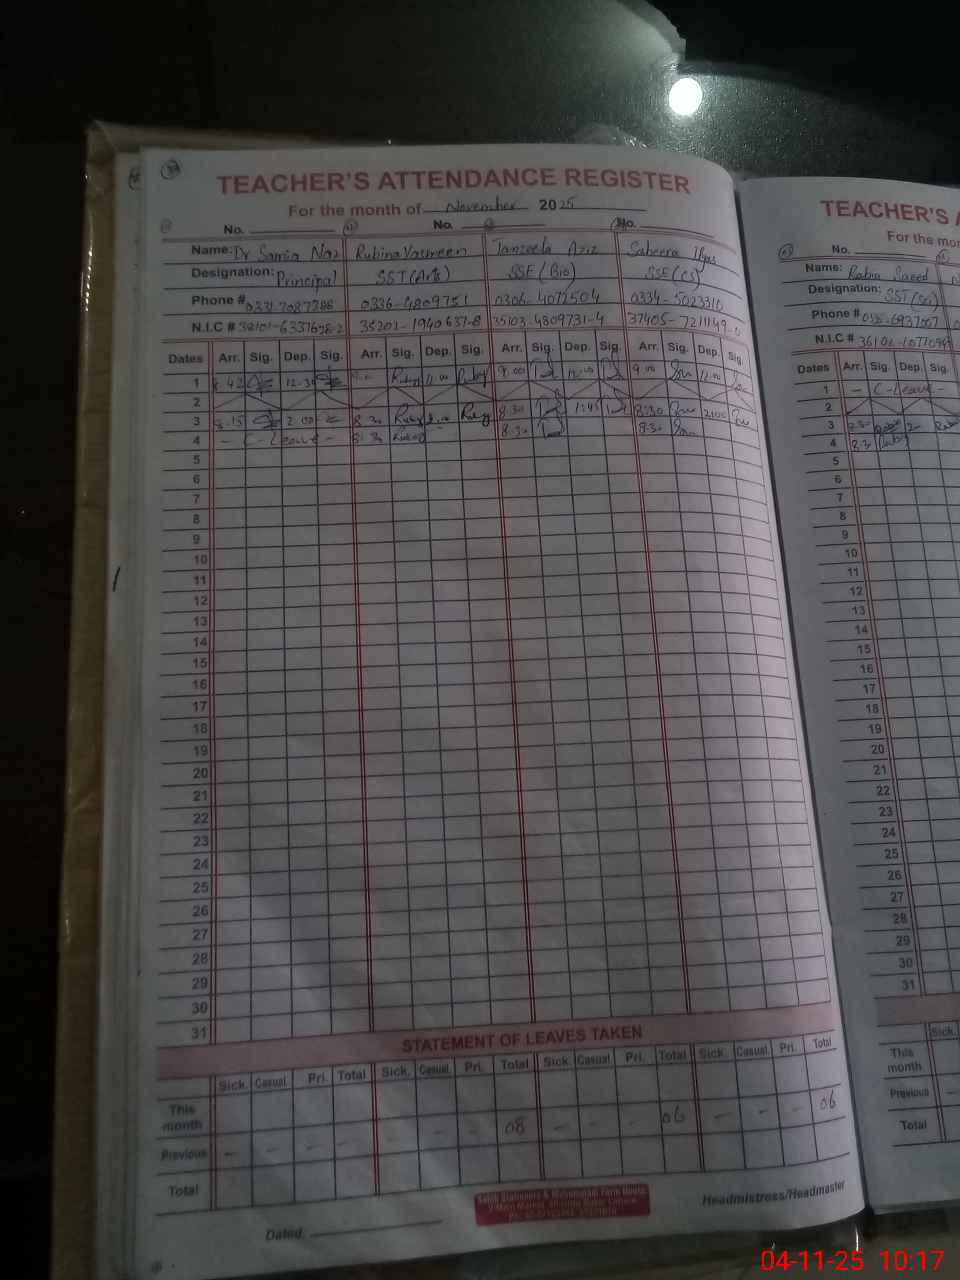 TEACHER'S ATTENDANCE REGISTER
For the month of November 2025
No. No. No.
Name: Dr Samia Naz Rubina Yasmeen Tanzeela Aziz Sabeera Ilyas
Designation: Principal SST (Arts) SSE (Bio) SSE (CS)
Phone # 0336-4809751 0306-4072504 0334-5023310
N.I.C # 35202-1940637-8 35103-4809731-4 37405-7211149-0
Dates Arr. Sig. Dep. Sig. Arr. Sig. Dep. Sig. Arr. Sig. Dep. Sig. Arr. Sig. Dep. Sig.
1 8.42 12.30 Ruby 12.00 Ruby 9.00 12.00 9.00 12.00
2
3 8.15 2.00 8.30 Ruby Ruby 8.30 1:45 8:30 2:00
4 - C-Leave - 8.30 Ruby 8.30 8.30
5
6
7
8
9
10
11
12
13
14
15
16
17
18
19
20
21
22
23
24
25
26
27
28
29
30
31
STATEMENT OF LEAVES TAKEN
Sick. Casual. Pri. Total Sick. Casual. Pri. Total Sick. Casual. Pri. Total Sick. Casual. Pri. Total
This month
Previous - - - - - - - 08 - - - 06 - - - 06
Total
Dated.
Headmistress/Headmaster
TEACHER'S A
For the mon
No.
Name: Rabia Saeed
Designation: SST (Sci)
Phone #
N.I.C #
Dates Arr. Sig. Dep. Sig.
1 - C-Leave -
2
3
4
5
6
7
8
9
10
11
12
13
14
15
16
17
18
19
20
21
22
23
24
25
26
27
28
29
30
31
Sick.
This month
Previous -
Total
04-11-25 10:17